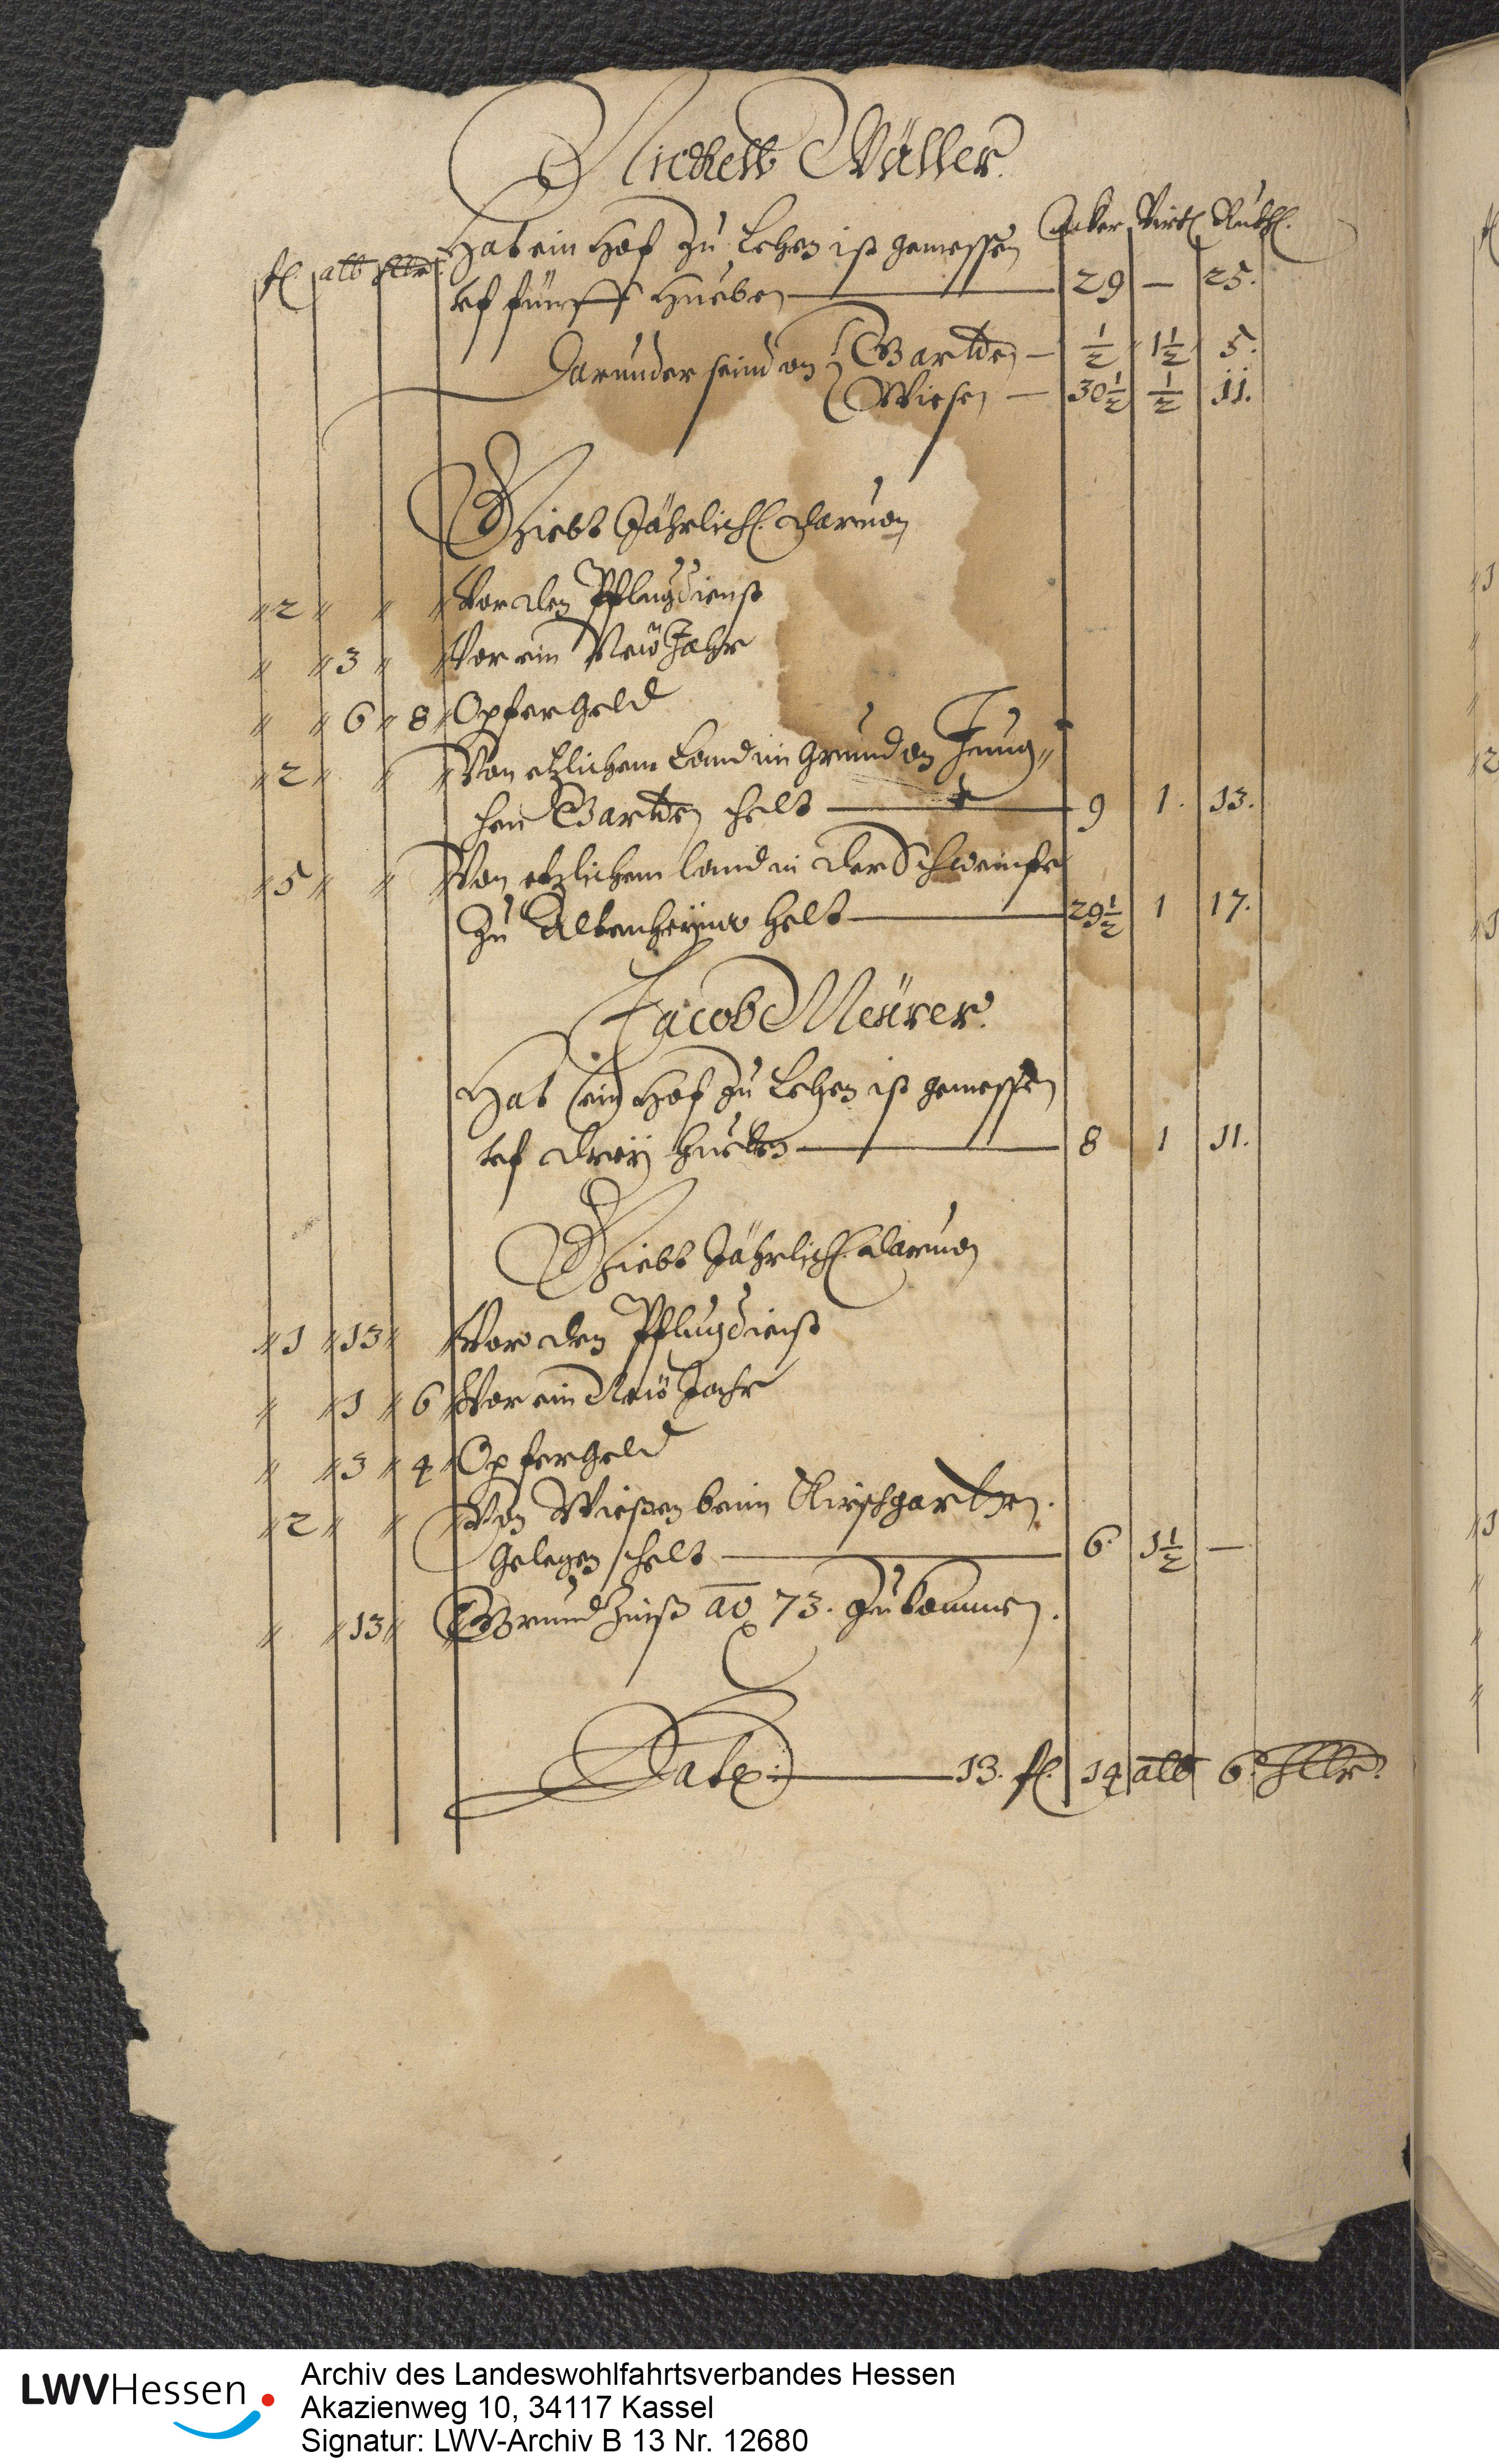 Michell Müller.
Acker Virtl Ruth.
Hat ein Hof zu Lehen ist gemessen
fl. alb hllr.
uf fünff Hueben — 29 — 25.
Darunder seind an Garthen — ½ 1½ 5.
Wiesen — 30½ ½ 11.
Giebt Jährlich. daruon
2 Vor den Pflugdienst
3 Vor ein Neü Jahr
6 8 Opfergeld
2 Von etzlichem Land im grund an Jung
hen Garthen helt — 9 1. 13.
5 Von etzlichem land in der
zu helt — 29½ 1 17.
Jacob Meürer.
Hat ein Hof zu Lehen ist gemessen
uf dreÿ hueben — 8 1 11.
Giebt Jährlich. daruon
1 13 Vor den Pflugdienst
1 6 Vor ein Neü Jahr
3 4 Opfergeld
2 Von Wießen beim Kirschgarten.
gelegen helt — 6. 1½ —
13 Grund Zinß ao 73. zukommen.
Latus: — 13. fl. 14 alb 6. hllr.
LWVHessen
Archiv des Landeswohlfahrtsverbandes Hessen
Akazienweg 10, 34117 Kassel
Signatur: LWV-Archiv B 13 Nr. 12680